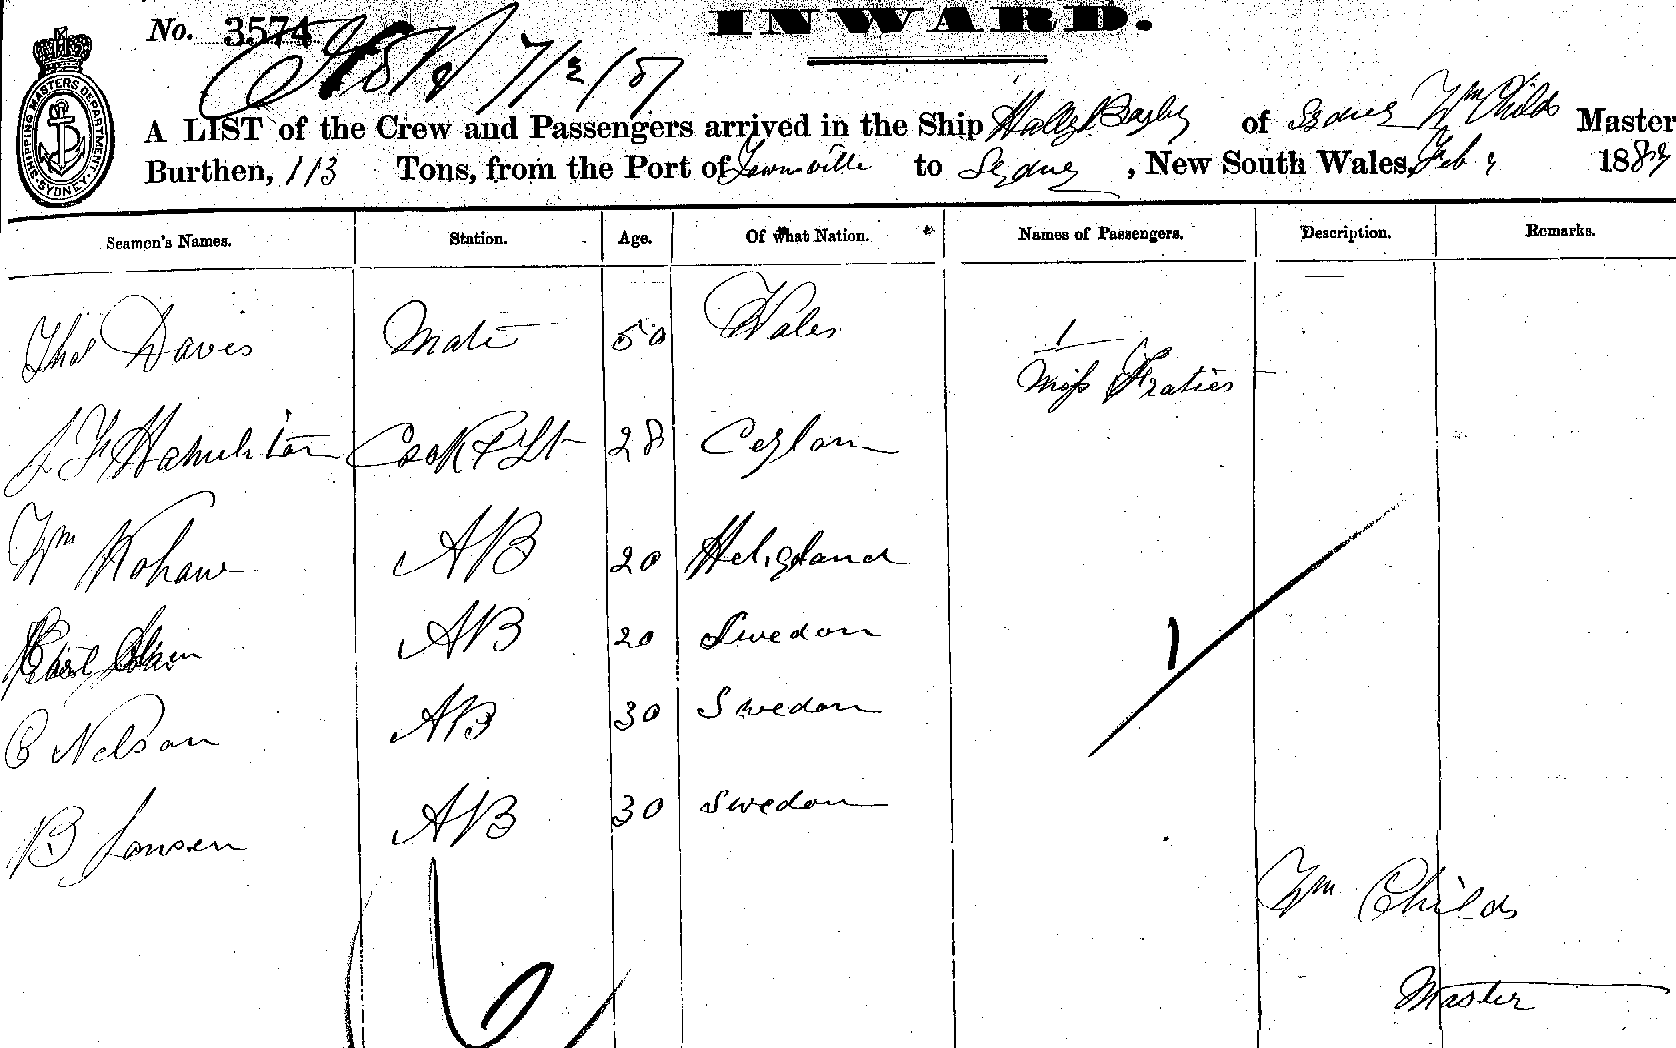 INWARD.
No. 3574
SHIPPING MASTERS DEPARTMENT SYDNEY
A LIST of the Crew and Passengers arrived in the Ship of Wm Childs Master
Burthen, 113 Tons, from the Port of Townsville to Sydney, New South Wales, Feb 188
Seamen's Names. Station. Age. Of What Nation. Names of Passengers. Description. Remarks.
Thos Davis Mate 50 Wales
1
Miss
J F Hamilton Cook & St 28 Ceylon
Wm AB 20 Heligland
AB 20 Swedon
1
C Nelson AB 30 Swedon
B Jansen AB 30 Swedon
6
Wm Childs
Master